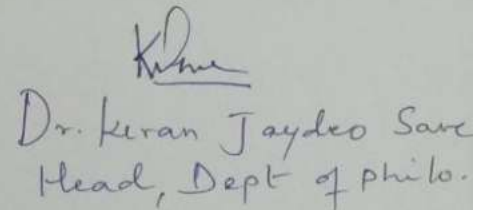 Dr. Kiran Jaydeo Save
Head, Dept of philo.